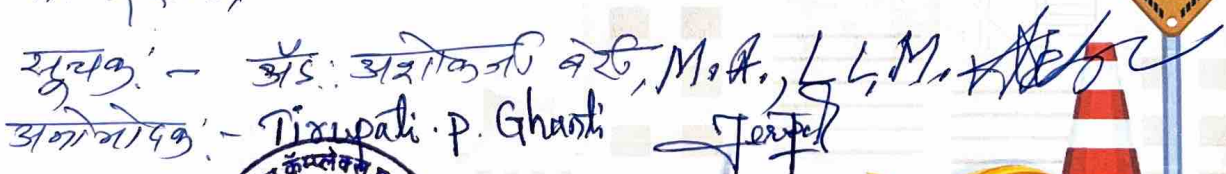 सूचक:- अ‍ॅड. अशोकजी बेटी, M.A., L L.M.
अनोमोदक:- Tirupati. P. Ghanti
कॅम्प्लेक्स